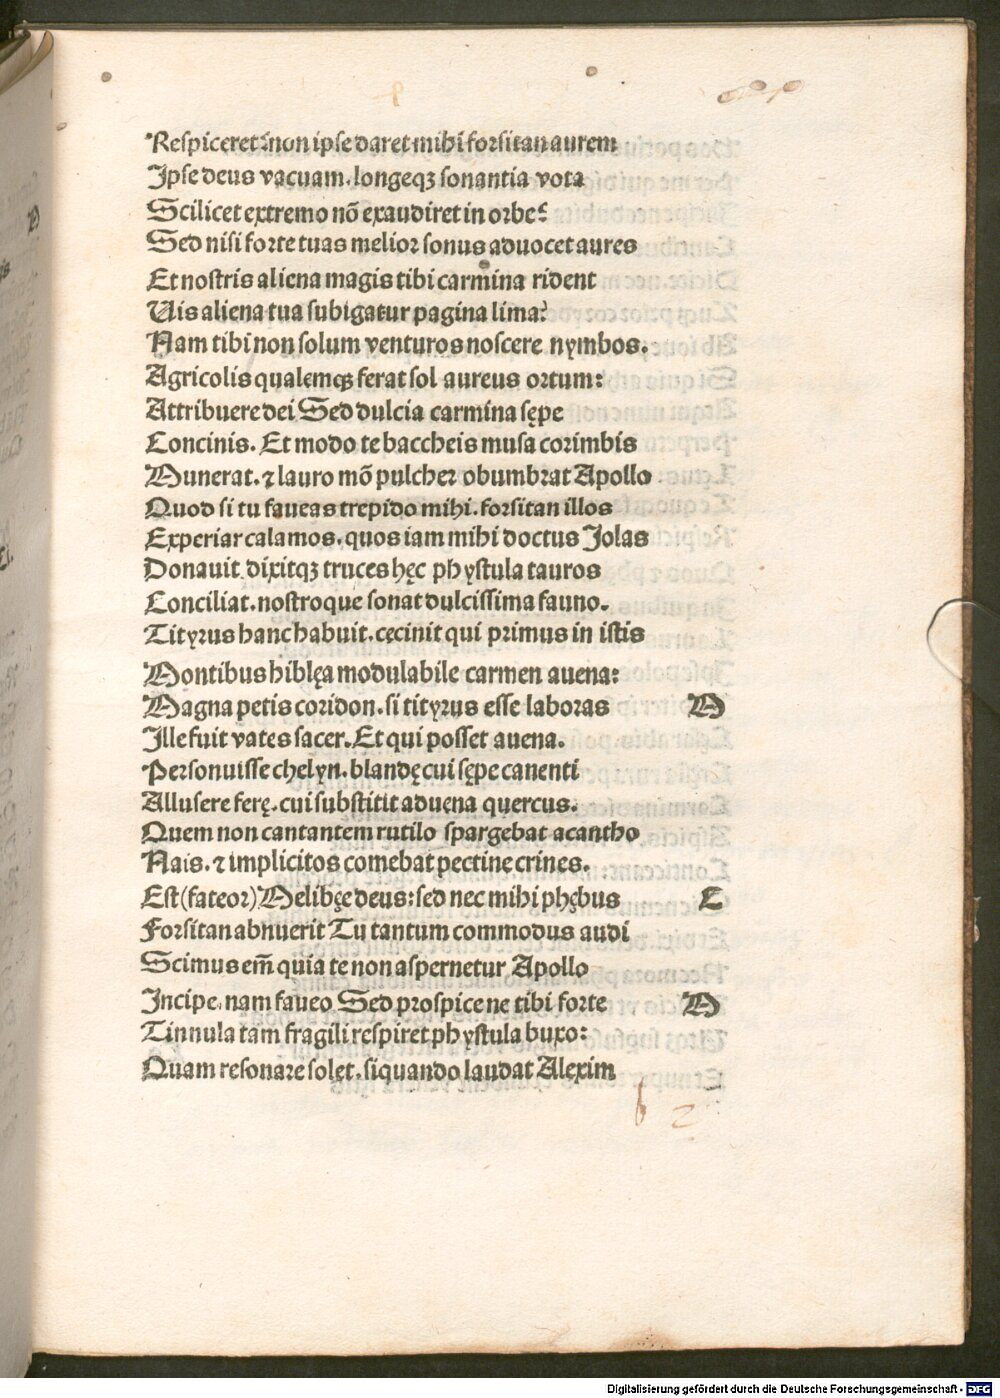 Respiceret: non ipse daret mihi forsitan aurem
Ipse deus vacuam. longeqꝫ sonantia vota
Scilicet extremo nō exaudiret in orbe?
Sed nisi forte tuas melior sonus aduocet aures
Et nostris aliena magis tibi carmina rident
Uis aliena tua subigatur pagina lima?
Nam tibi non solum venturos noscere nymbos.
Agricolis qualemqꝫ ferat sol aureus ortum:
Attribuere dei Sed dulcia carmina sępe
Concinis. Et modo te baccheis musa corimbis
Munerat. ⁊ lauro mō pulcher obumbrat Apollo
Quod si tu faueas trepido mihi. forsitan illos
Experiar calamos. quos iam mihi doctus Jolas
Donauit. dixitqꝫ truces hęc phystula tauros
Conciliat. nostroque sonat dulcissima fauno.
Tityrus hanc habuit. cecinit qui primus in istis
Montibus hiblęa modulabile carmen auena:
Magna petis coridon. si tityrus esse laboras M
Ille fuit vates sacer. Et qui posset auena.
Personuisse chelyn. blandę cui sępe canenti
Allusere ferę. cui substitit aduena quercus.
Quem non cantantem rutilo spargebat acantho
Nais. ⁊ implicitos comebat pectine crines.
Est (fateor) Melibęe deus: sed nec mihi phębus C
Forsitan abnuerit Tu tantum commodus audi
Scimus em̄ quia te non aspernetur Apollo
Incipe. nam faueo Sed prospice ne tibi forte M
Tinnula tam fragili respiret phystula buxo:
Quam resonare solet. siquando laudat Alexim
b 2
Digitalisierung gefördert durch die Deutsche Forschungsgemeinschaft - DFG